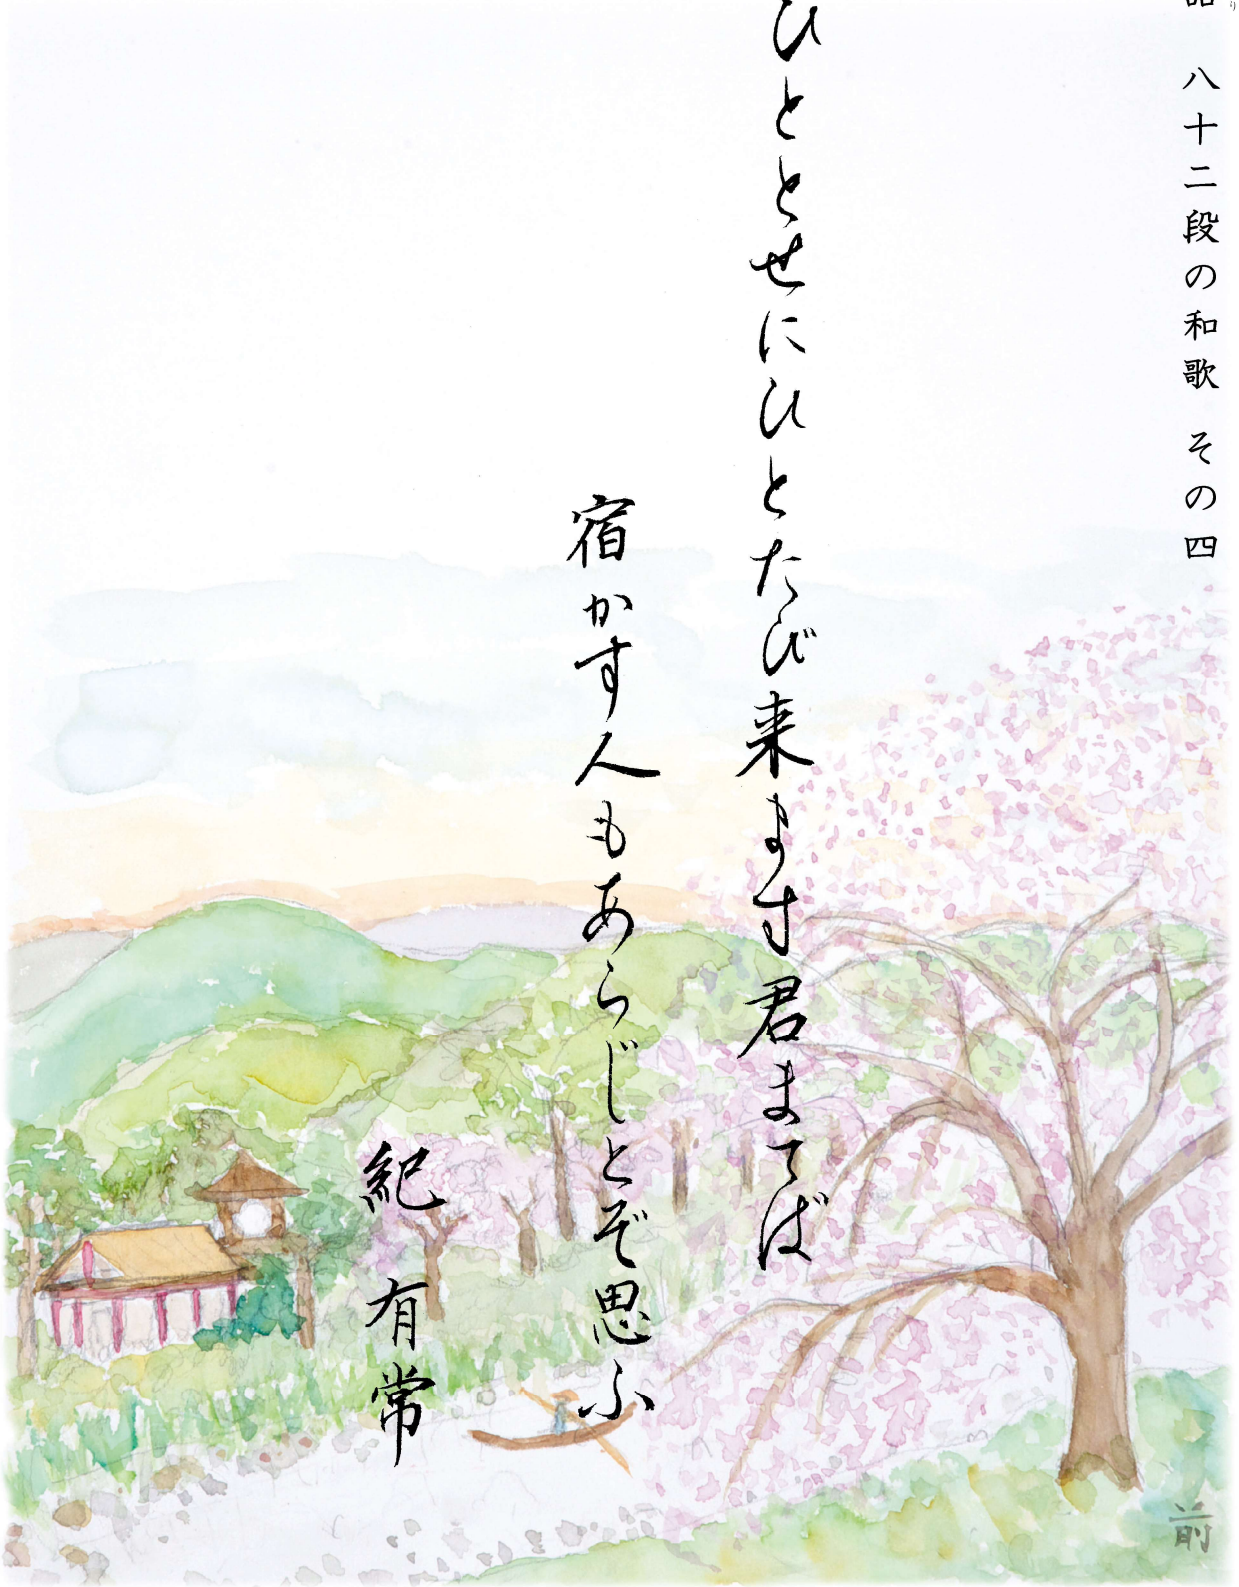 八十二段の和歌 その四
ひととせにひとたび来ます君まてば
宿かす人もあらじとぞ思ふ
紀 有常
前